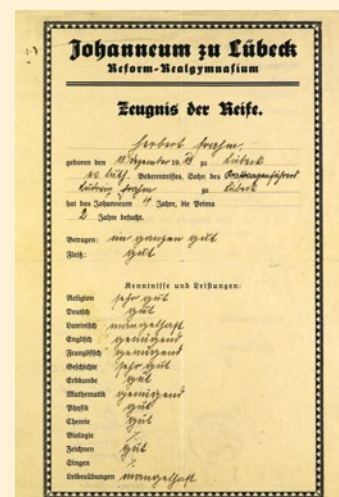 Johanneum zu Lübeck
Reform-Realgymnasium
Zeugnis der Reife.
Herbert Frahm,
geboren den 18. Dezember 19 13 zu Lübeck
ev. luth. Bekenntnisses, Sohn des
Ludwig Frahm zu Lübeck
hat das Johanneum 4 Jahre, die Prima
2 Jahre besucht.
Betragen: im ganzen gut
Fleiß: gut
Kenntnisse und Leistungen:
Religion sehr gut
Deutsch gut
Lateinisch mangelhaft
Englisch genügend
Französisch genügend
Geschichte sehr gut
Erdkunde gut
Mathematik genügend
Physik gut
Chemie gut
Biologie ./.
Zeichnen gut
Singen ./.
Leibesübungen mangelhaft